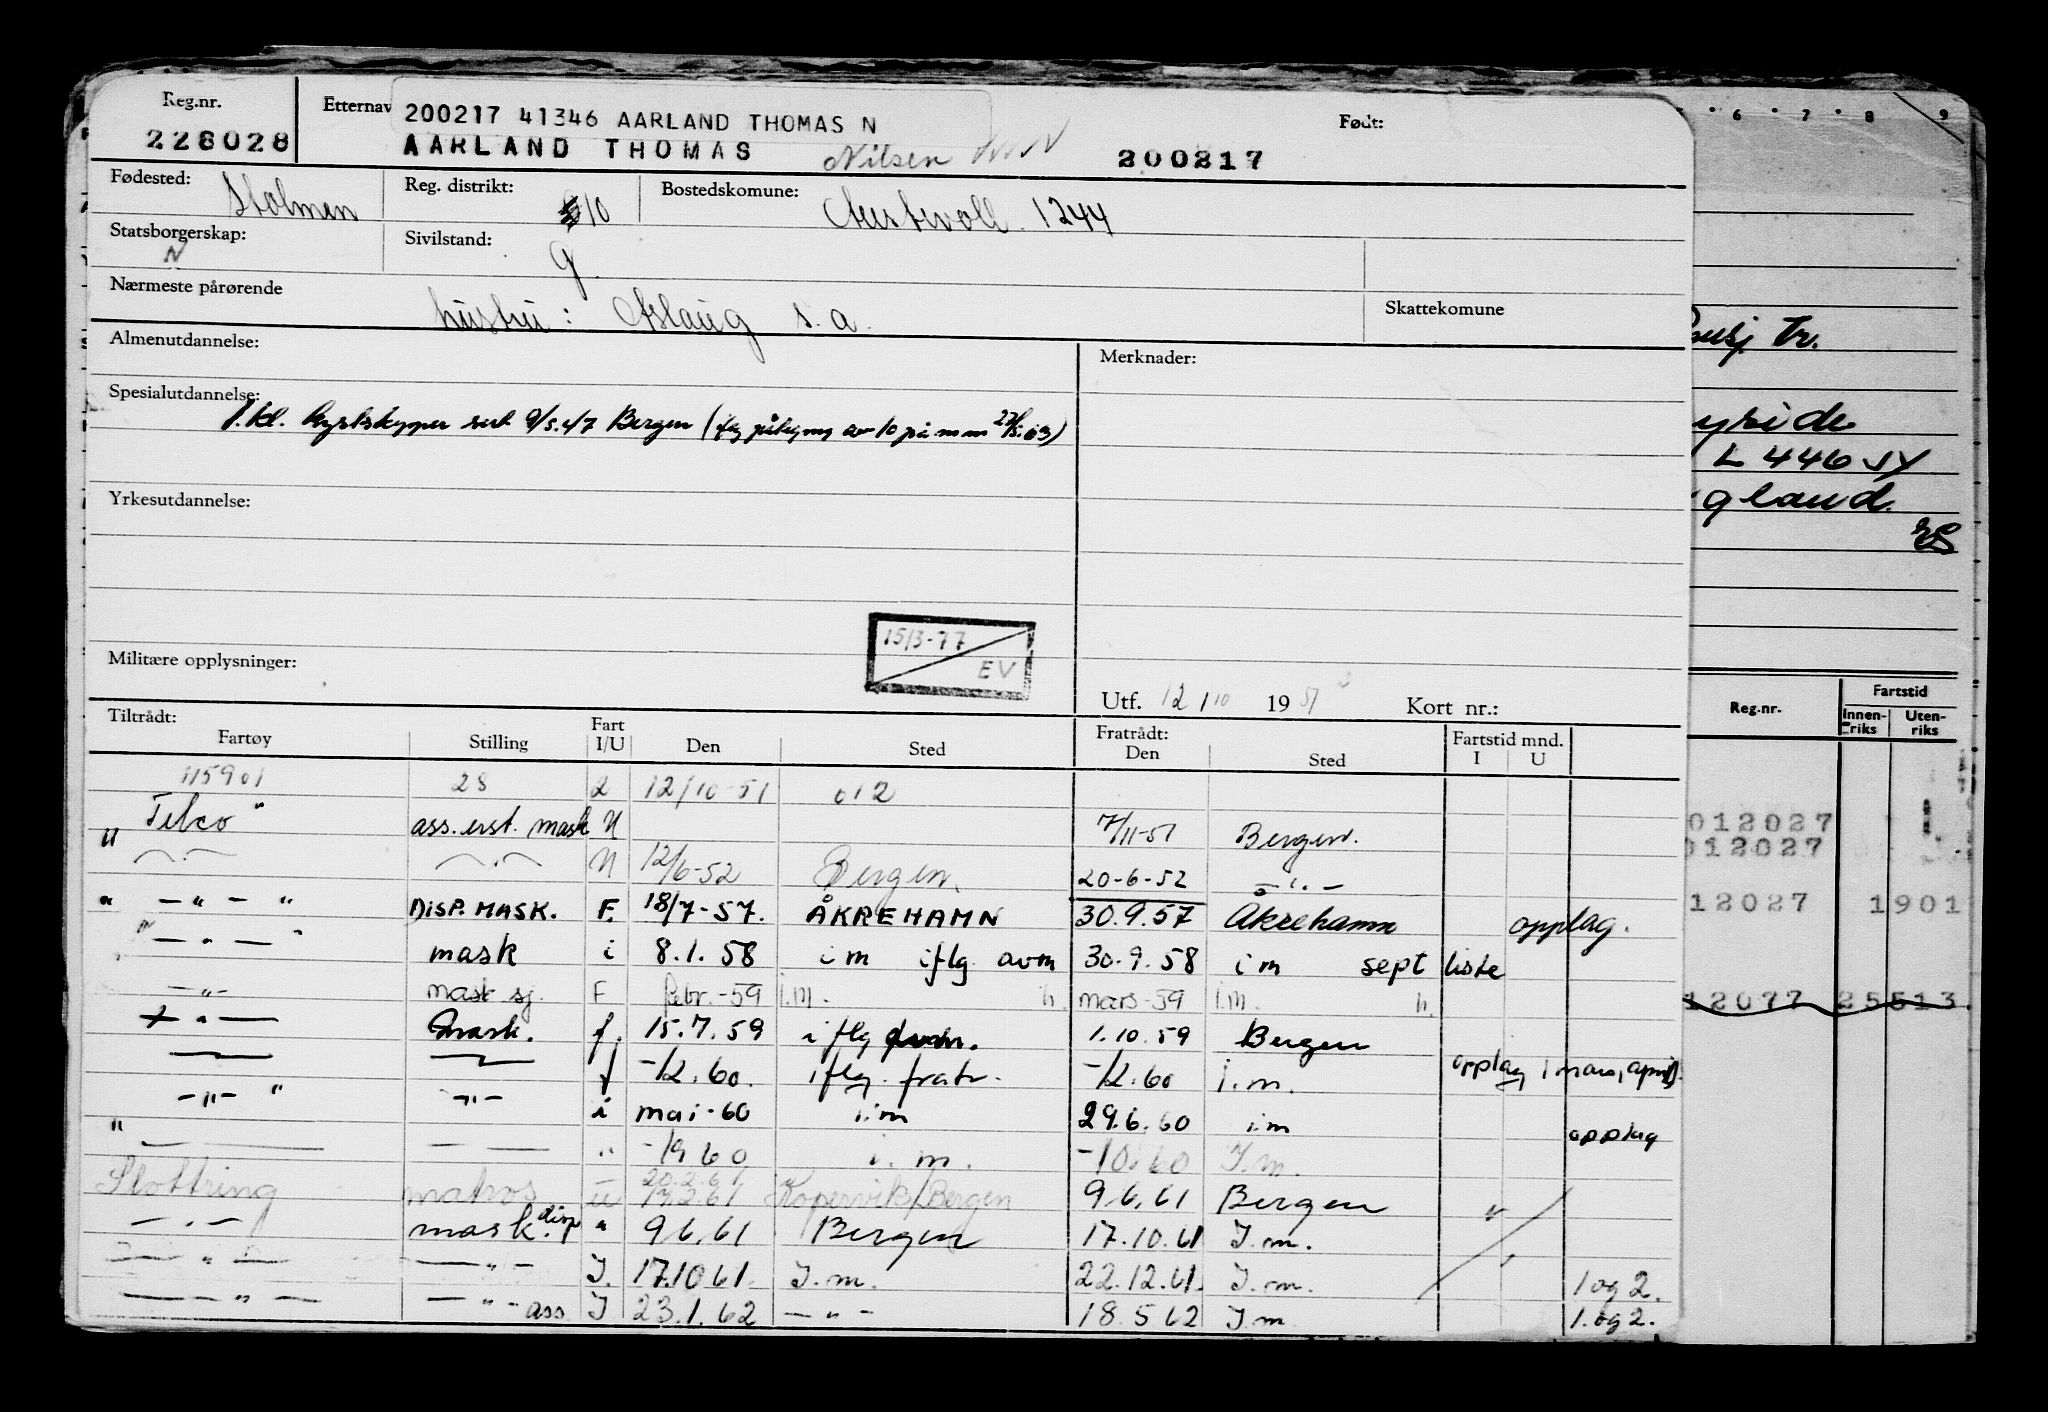 Reg.nr. Etternav 200217 41346 AARLAND THOMAS N Født:
228028 AARLAND THOMAS Nilsen 200217
Fødested: Stolmen Reg. distrikt: 10 Bostedskomune: Austevoll 1244
Statsborgerskap: N Sivilstand: g.
Nærmeste pårørende hustru: Aslaug s. a. Skattekomune
Almenutdannelse: Merknader:
Spesialutdannelse:
1. kl. kystskipper sert 9/5.47 Bergen
Yrkesutdannelse:
15/3-77
EV
Militære opplysninger:
Utf. 12/10 1951 Kort nr.:
Tiltrådt: Fratrådt:
Fartøy Stilling Fart I/U Den Sted Den Sted Fartstid mnd. I U
115901 28 2 12/10-51 012
"Telco" ass. erst. mask U 7/11-51 Bergen.
U 12/6-52 Bergen. 20-6-52 - " -
" - " - " DISP. MASK. F. 18/7-57. ÅKREHAMN 30.9.57 Åkrehamn opplag.
" - " - " mask i 8.1.58 i m iflg avm 30.9.58 i m sept liste
- " - mask sj. F febr.-59 i.m. h. mars-59 i.m. h.
- " - mask. f. 15.7.59 iflg 1.10.59 Bergen
f -/2.60. iflg. fratr. -/2.60 i.m. opplag i mars, april
- " - " - " - i mai-60 i.m 29.6.60 i.m opplag
" " -/9 60 i. m. -10.60 I.m.
Slottring matros u 20.2.61 17.2.61 Kopervik/Bergen 9.6.61 Bergen
- " - mask. disp " 9.6.61 Bergen 17.10.61 I.m.
- " - - " - I. 17.10.61. I.m. 22.12.61. I.m. 1 og 2.
- " - - " - ass I 23.1.62 - " - 18.5.62 I.m 1. og 2.
6 7 8 9
tr.
L 446 SY
gland.
Reg.nr. Fartstid
Innenriks Utenriks
012027
012027
12027 1901
12077 25513